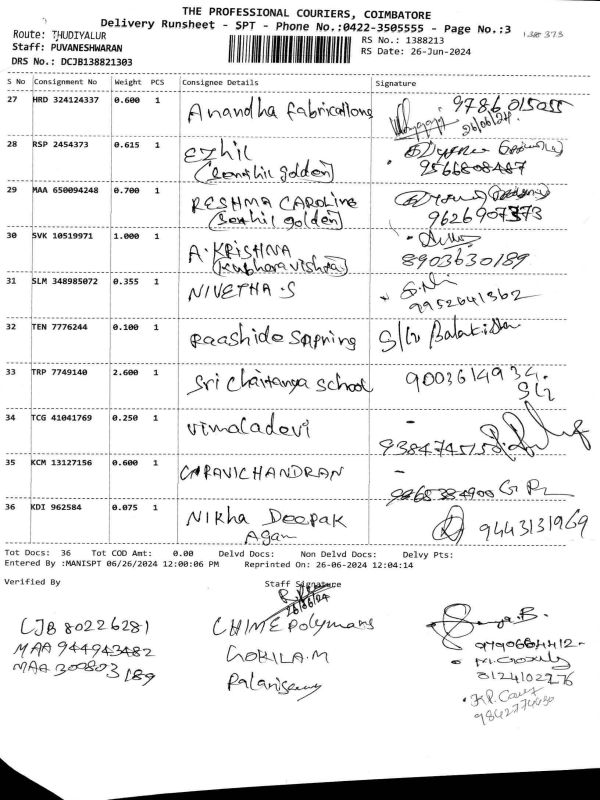 THE PROFESSIONAL COURIERS, COIMBATORE
Delivery Runsheet - SPT - Phone No.:0422-3505555 - Page No.:3
Route: THUDIYALUR RS No.: 1388213
Staff: PUVANESHWARAN RS Date: 26-Jun-2024
DRS No.: DCJB138821303
S No Consignment No Weight PCS Consignee Details Signature
27 HRD 324124337 0.600 1 Anandha fabrications 9786015055
26/06/24
28 RSP 2454373 0.615 1 EZHIL
(Senthil golden) 9566808487
29 MAA 650094248 0.700 1 RESHMA CAROLINE
(Senthil golden) 9626907373
30 SVK 10519971 1.000 1 A. KRISHNA
8903630189
31 SLM 348985072 0.355 1 NIVETHA.S
9952641362
32 TEN 7776244 0.100 1 Raashide
33 TRP 7749140 2.600 1 Sri Chaitanya School 9003614934.
34 TCG 41041769 0.250 1 vimaladevi
35 KCM 13127156 0.600 1 RAVICHANDRAN
36 KDI 962584 0.075 1 NIKHA DEEPAK 9443131969
Tot Docs: 36 Tot COD Amt: 0.00 Delvd Docs: Non Delvd Docs: Delvy Pts:
Entered By :MANISPT 06/26/2024 12:00:06 PM Reprinted On: 26-06-2024 12:04:14
Verified By Staff Signature
26/06/24
CJB 80226281 CHIME Polymars
MAA 944943482 GOKILA.M
MAA 300803189
8124102776
9842774450